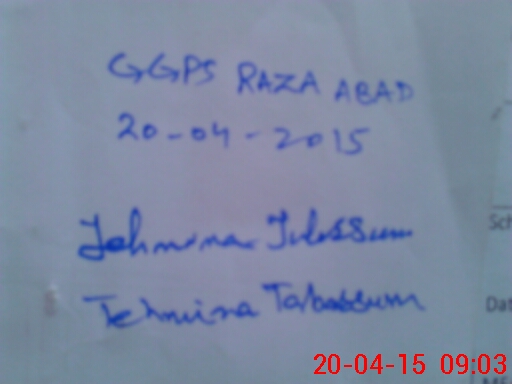 GGPS RAZA ABAD
20-04-2015
Tehmina Tabassum
Tehmina Tabassum
Sch
Dat
20-04-15 09:03